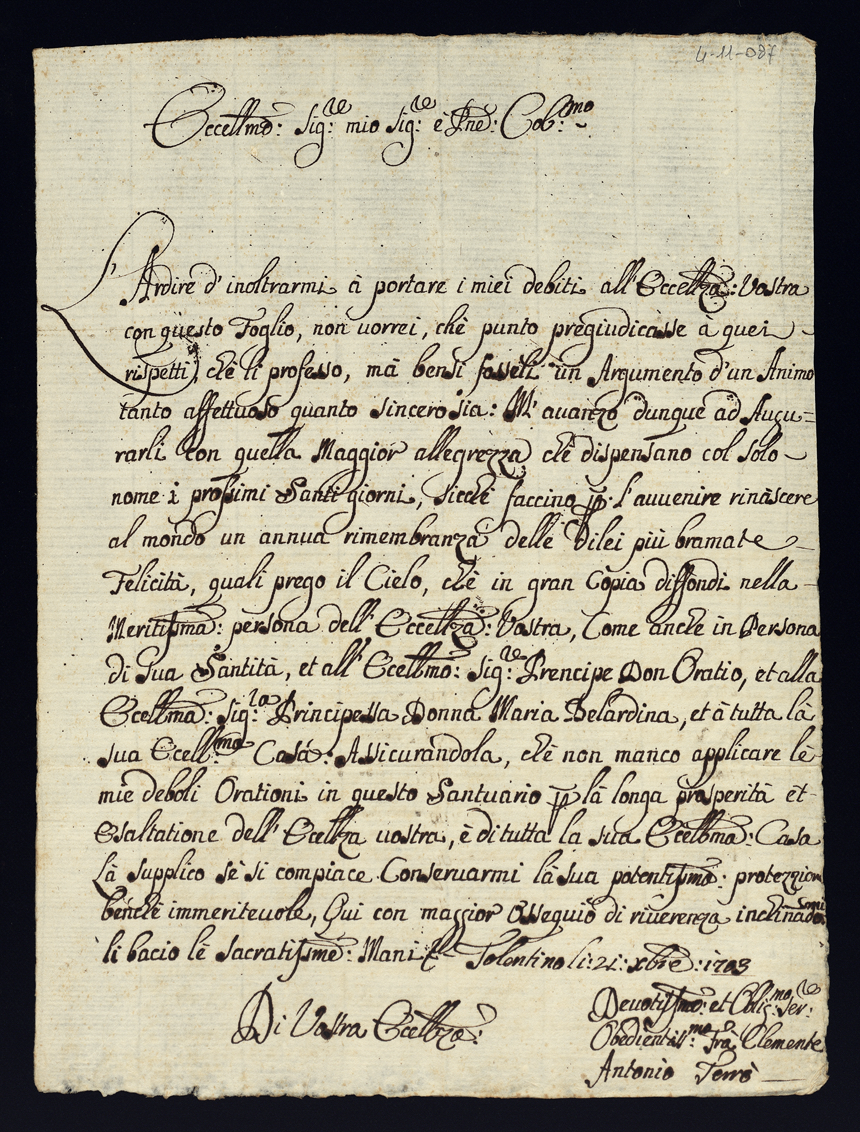 4-11-087
Eccellmo: Sigre: mio Sigre: è Pne: Colmo:
L'Ardire d'inoltrarmi à portare i miei debiti all'Eccellza: Vostra
con questo Foglio, non vorrei, chè punto pregiudicasse à quei
rispetti, chè li professo, mà bensì fosseli un Argumento d'un Animo
tanto affettuoso quanto sincero sia: M'auanzo dunque ad Augu=
rarli con quella Maggior allegrezza chè dispensano col solo
nome i prossimi Santi giorni, sicchè faccino p: l'auuenire rinascere
al mondo un annua rimembranza delle Dilei più bramate
Felicità, quali prego il Cielo, chè in gran Còpia diffondi nella
Meritissma: persona dell'Eccellza: Vostra, Come anche in Persona
di Sua Santità, et all'Ecellmo: Sigre: Prencipe Don Oratio, et alla
Eccellma: Sigra: Principessa Donna Maria Belardina, et à tutta là
sua Ecellma: Casa: Assicurandola, chè non manco applicare lè
mie deboli Orationi in questo Santuario p là longa pròsperità et
Esaltatione dell'Ecellza vostra, è di tutta la sua Ecellma: Casa
Là supplico sè si compiace Conseruarmi là sua potentissma: protezzion
benchè immeriteuole, Qui con maggior Ossequio di riuerenza inclinado
li bacio lè Sacratissme: Mani Tolentino li: 21: xbre: 1703
Di Vostra Ecellza:
Deuotissmo: et Obligmo: Ser:
Obedientissmo: Frà Clemente
Antonio Ferrò